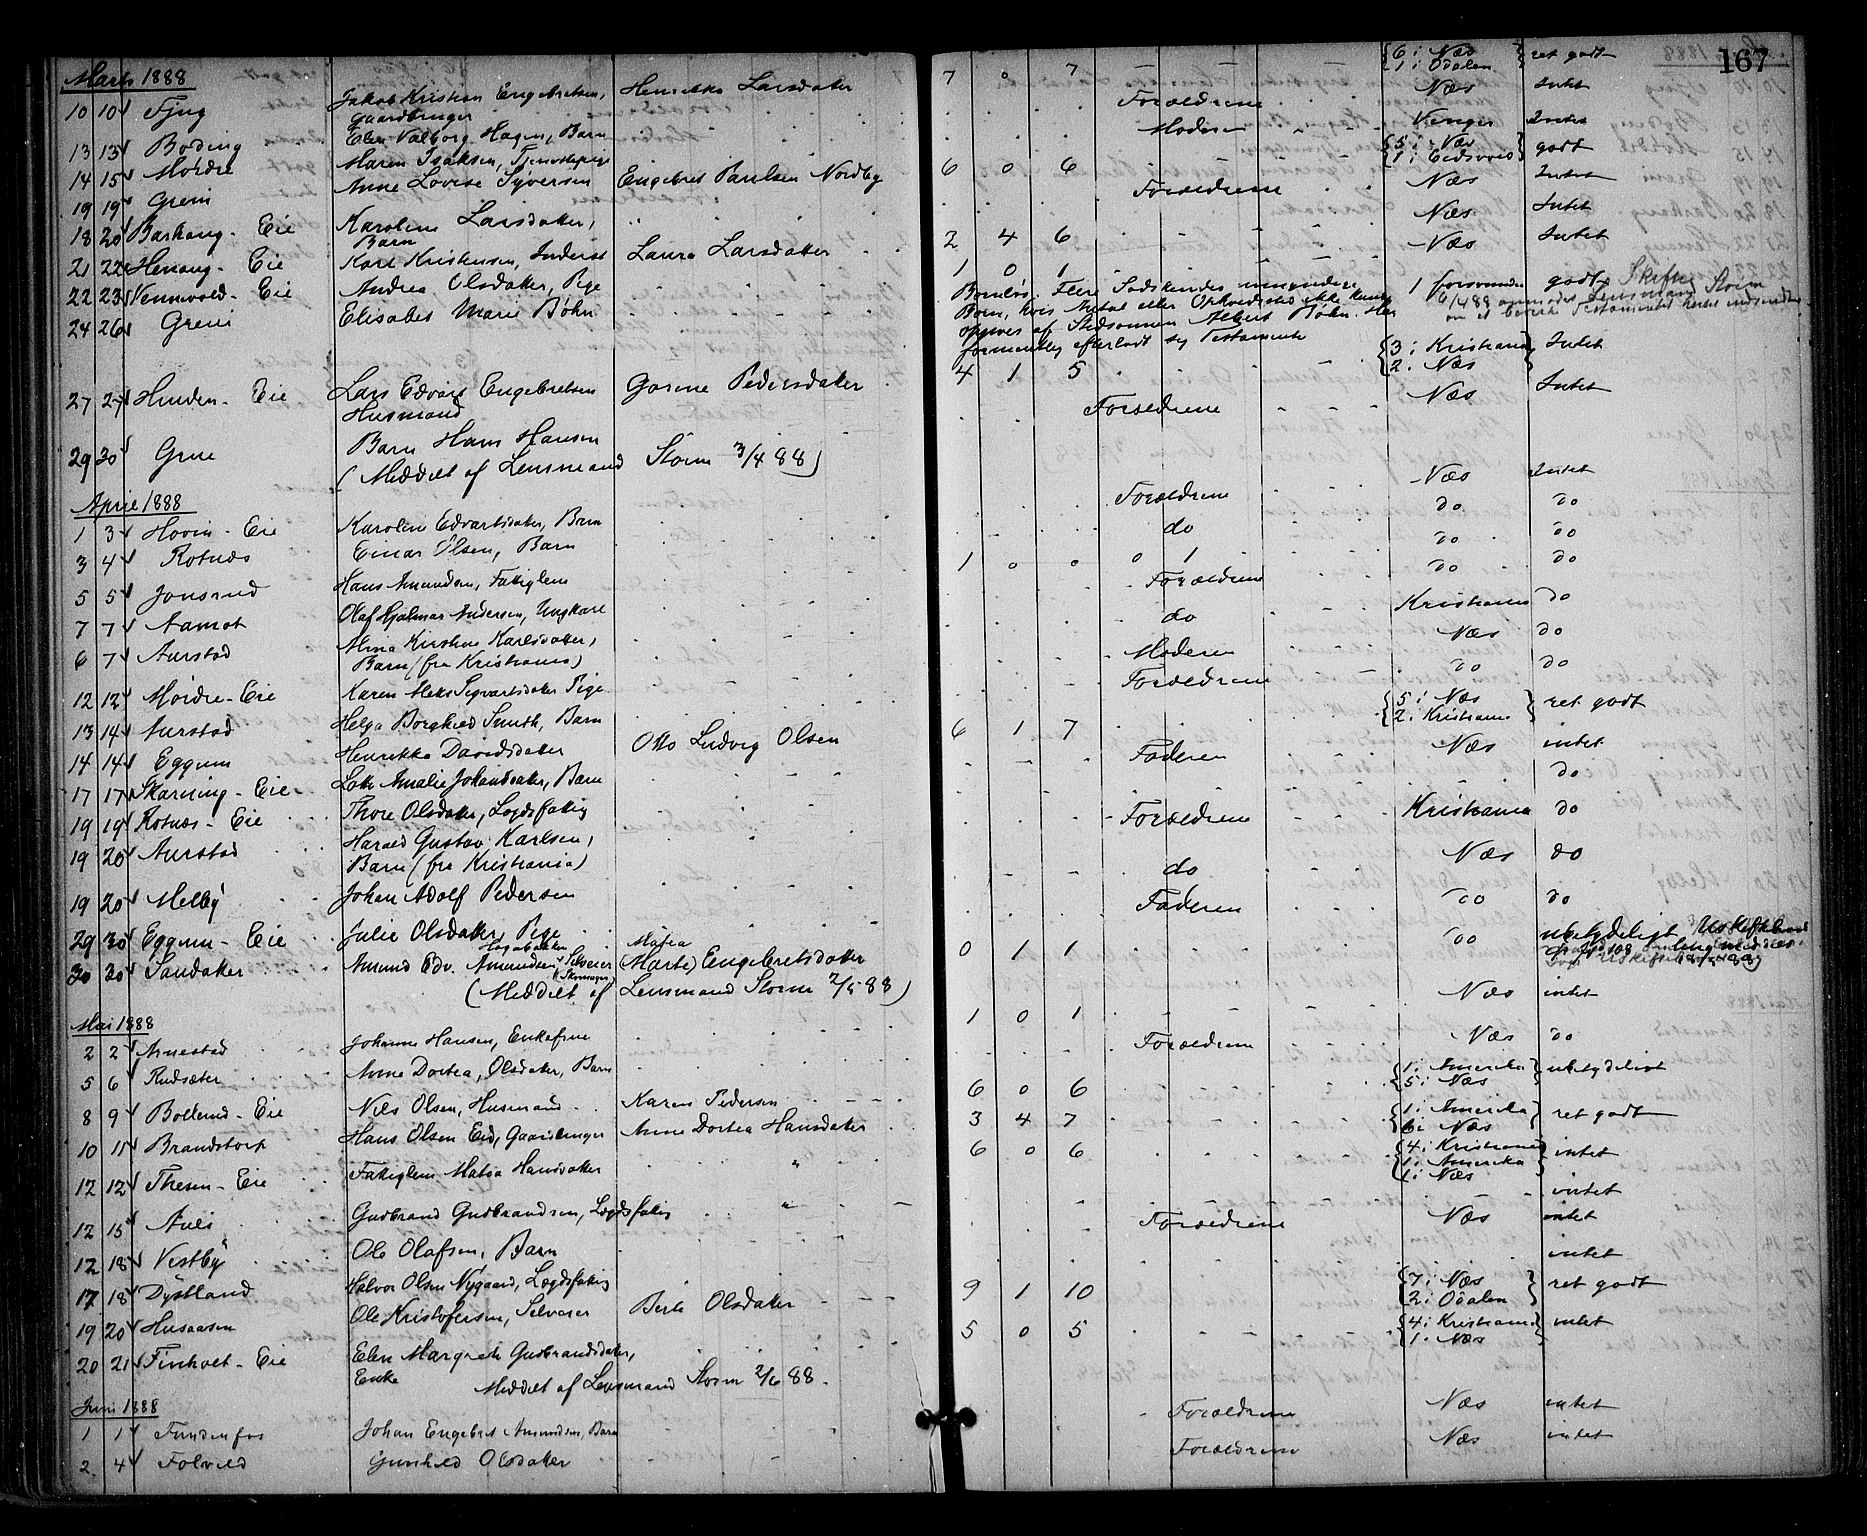 167
Marts 1888
10 10 Fjug Jakob Kristian Engebretsen, Henrikke Larsdatter 7 0 7 {6 i Næs ret godt
Gaardbruger 1 i Odalen}
13 13 Boding Elen Valborg Hagen, Barn Forældrene Næs Intet
14 15 Mørdre Maren Isaksen, Tjenestepige Moderen Venger Intet
19 19 Greni Anne Lovise Syversen Engebret Paulsen Nordby 6 0 6 {5 i Næs godt
1 i Eidsvold}
18 20 Barhaug - Eie Karoline Larsdatter, Forældrene Næs Intet
Barn
21 22 Henaug - Eie Karl Kristensen, Inderst Laura Larsdatter 2 4 6 Næs Intet
22 23 Vennevold - Eie Andrea Olsdatter, Pige 1 0 1 Næs Intet
24 26 Greni Elisabet Marie Bøhn Barnløs. Flere Sødskendes umyndige 1 forsvunden godt Skifte
Børn, hvis Antal eller Opholdssted ikke kunne 6/4 88 anmodet Lensmand Storm
opgives af Stedsønnen Albert Bøhn. Har om at bevirke Testamentet hertil indsendt
formentlig efterladt sig Testamente
27 27 Henden - Eie Lars Edvard Engebretsen Gorine Pedersdatter 4 1 5 {3 i Kristiania Intet
Husmand 2 i Næs}
29 30 Grue Barn Hans Hansen Forældrene Næs Intet
(Meddelt af Lensmand Storm 3/4 88)
April 1888
1 3 Hovin - Eie Karoline Edvartsdatter, Barn Forældrene Næs Intet
3 4 Rotnæs Einar Olsen, Barn do do do
5 5 Jonsrud Hans Amundsen, Fattiglem 1 0 0 0 1 do do
7 7 Aamot Olaf Hjalmar Andersen, Ungkarl Forældrene do do
6 7 Aurstad Alma Kirstine Karlsdatter, do Kristiania do
Barn (fra Kristiania)
12 12 Mørdre - Eie Karen Segvartsdatter Pige Moderen Næs do
13 14 Aurstad Helga Borghild Smith, Barn Forældrene do do
14 14 Eggum Henrikka Davidsdatter Otto Ludvig Olsen 6 1 7 {5 i Næs ret godt
2 i Kristiania}
17 17 Skarning - Eie Amalie Johansdatter, Barn Faderen Næs intet
19 19 Rotnæs - Eie Thore Olsdatter, Lægdsfattig do
19 20 Aurstad Harald Gustav Karlsen, Forældrene Kristiania do
Barn (fra Kristiania)
19 20 Melby Johan Adolf Pedersen do Næs do
29 30 Eggum - Eie Julie Olsdatter Pige Faderen do do
30 30 Sandaker Amund Edv. Amundsen Selveier (Marte) Engebretsdatter 0 1 1 do ubetydeligt
(Meddelt af Lensmand Storm 2/5 88)
Mai 1888
2 2 Arnestad Johanne Hansen, Enkefrue 1 0 1 Næs intet
5 6 Rudsæter Anne Dortea Olsdatter, Barn Forældrene Næs do
8 9 Bollerud - Eie Nils Olsen, Husmand Karen Pedersen 6 0 6 {1 i Amerika ubetydeligt
5 i Næs}
10 11 Brandstorp Hans Olsen Eid, Gaardbruger Anne Dortea Hansdatter 3 4 7 {1 i Amerika ret godt
6 i Næs}
12 12 Thesen - Eie Fattiglem Matea Hansdatter 6 0 6 {4 i Kristiania intet
1 i Amerika
1 i Næs}
12 15 Auli Gudbrand Gudbrandsen, Lægdsfattig intet
12 18 Vestby Ole Olafsen, Barn Forældrene Næs intet
17 18 Dystland Halvor Olsen Nygaard, Lægdsfattig intet
19 20 Husaasen Ole Kristofersen, Selveier Berte Olsdatter 9 1 10 {7 i Næs ret godt
2 i Odalen}
20 21 Finholt - Eie Elen Margrete Gudbrandsdatter, 5 0 5 {4 i Kristiania intet
Enke 1 i Næs}
Meddelt af Lensmand Storm 2/6 88.
Juni 1888
1 1 Fundenfos Johan Engebret Amundsen, Barn Forældrene Næs intet
2 4 Folvild Gunhild Olsdatter Forældrene Næs intet